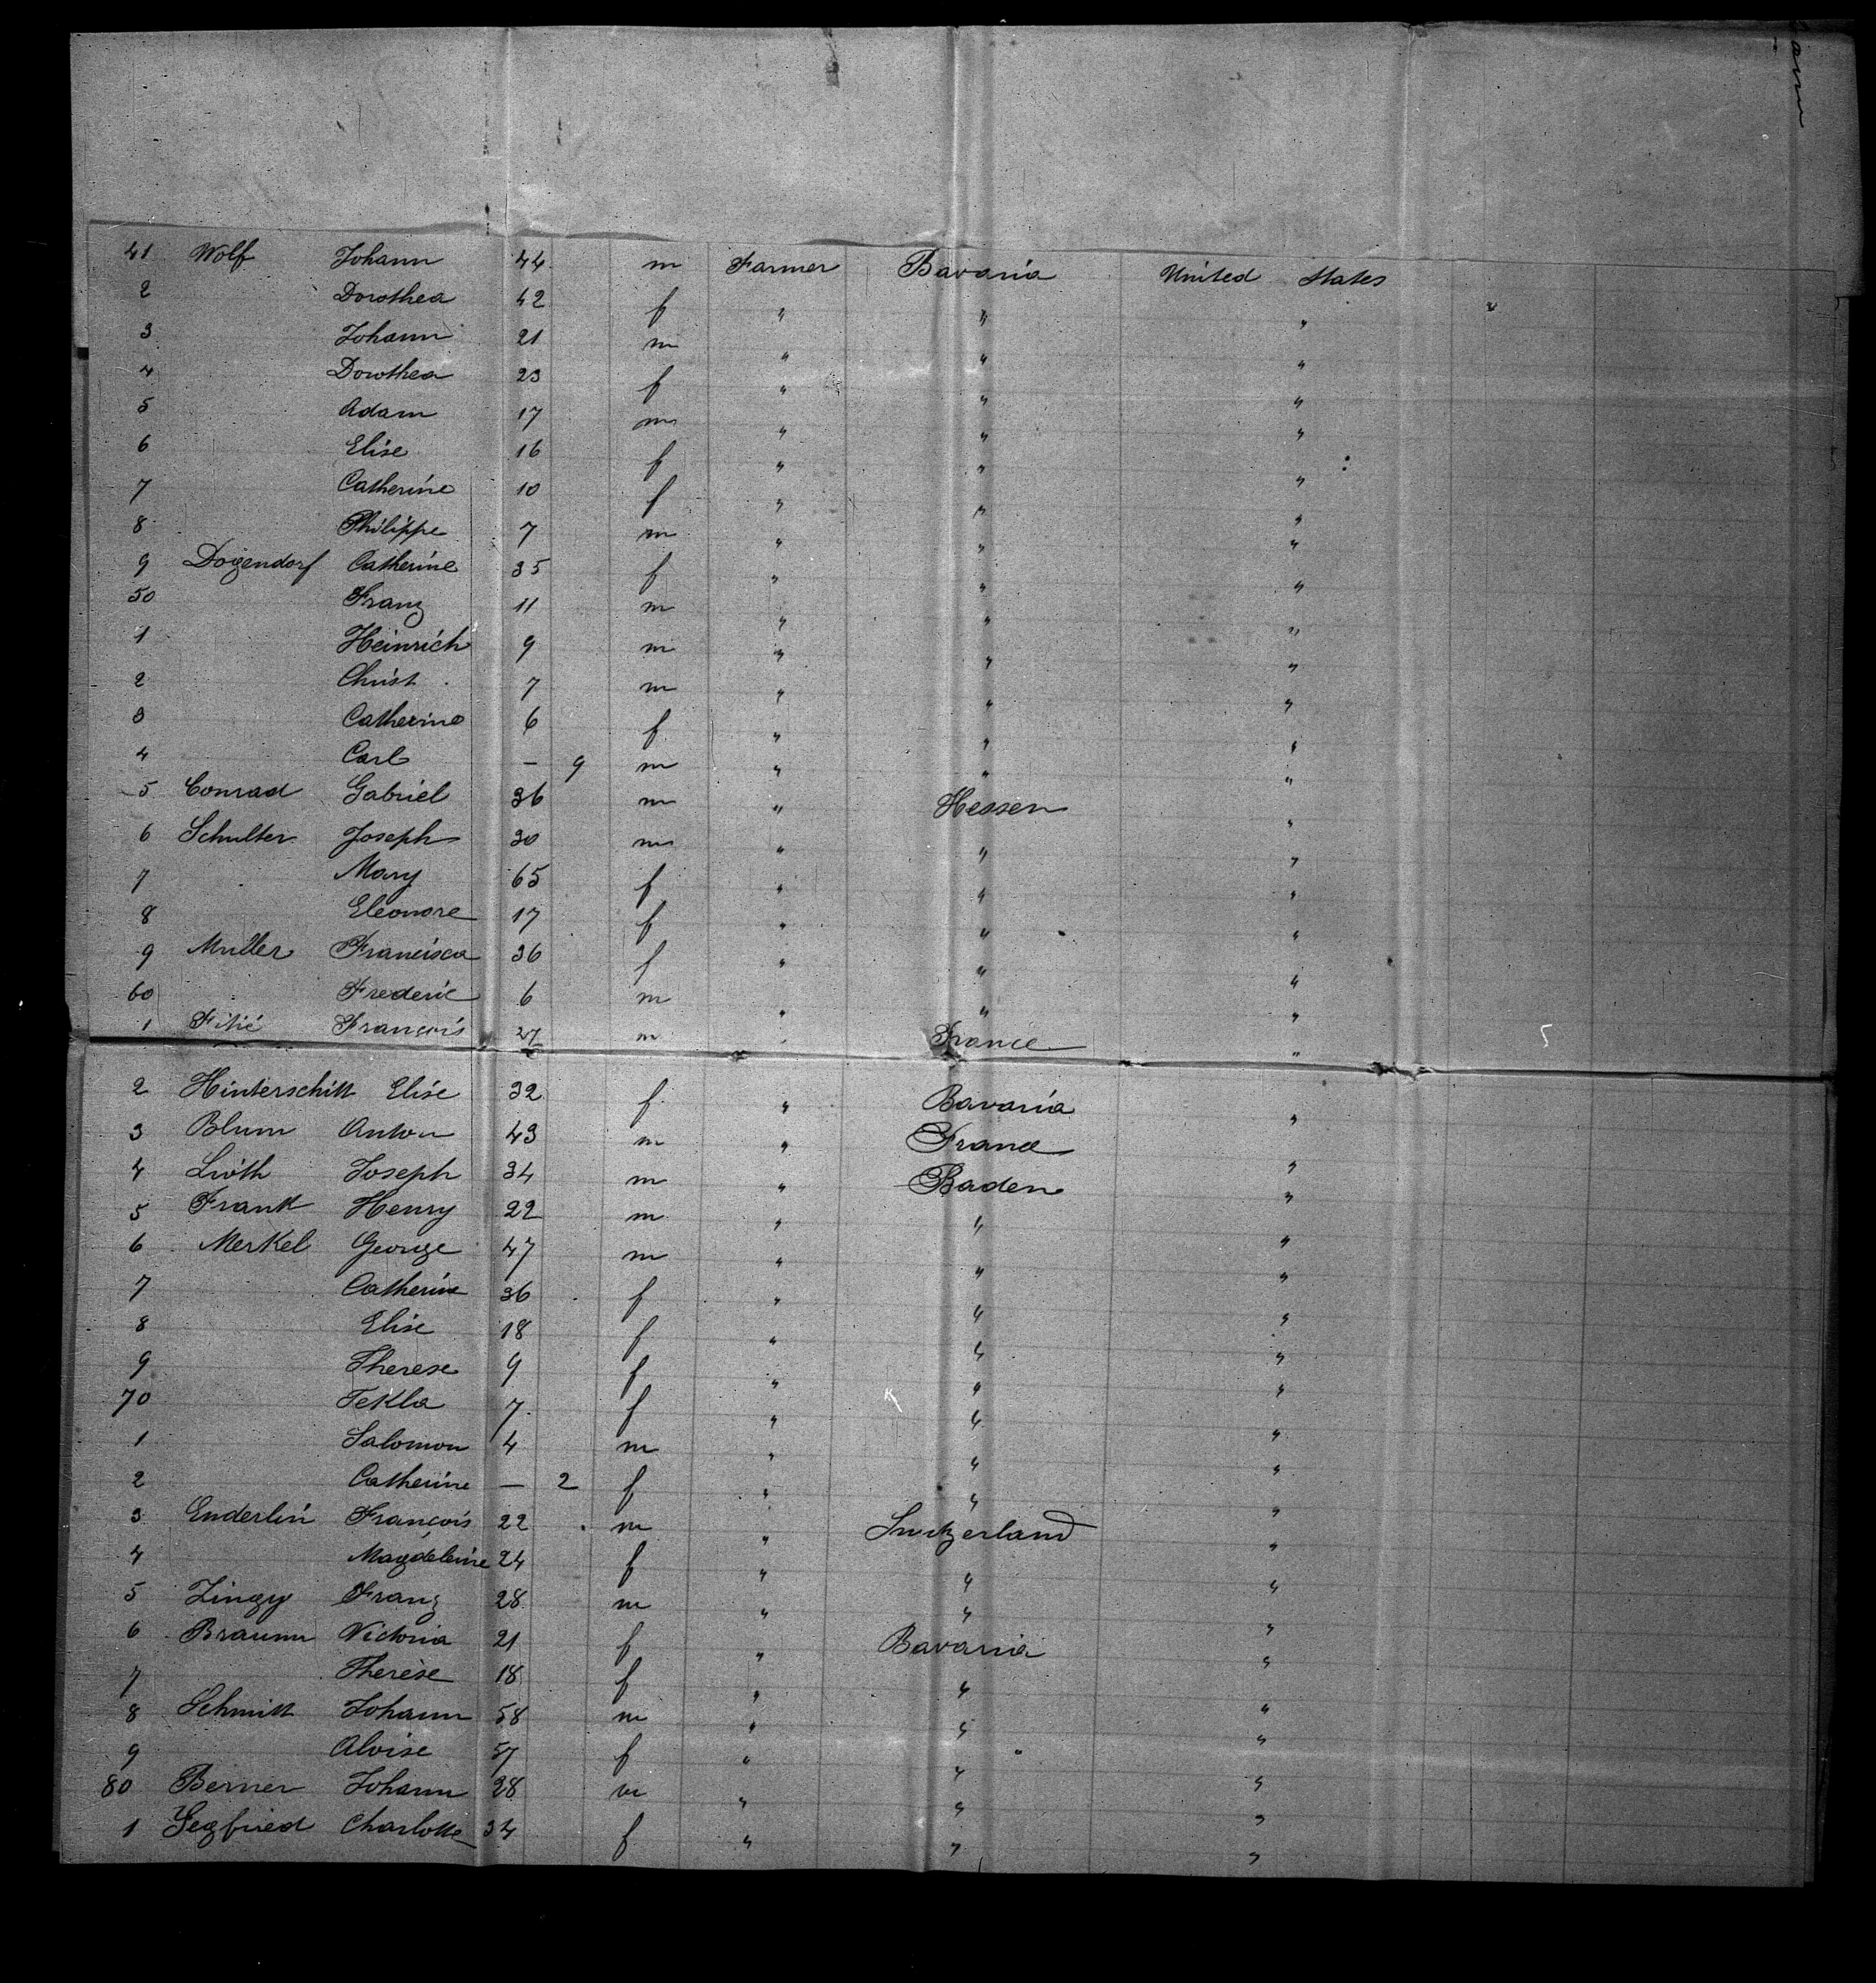 41 Wolf Johann 44 m Farmer Bavaria United States
2 Dorothea 42 f " " "
3 Johann 21 m " " "
4 Dorothea 23 f " " "
5 Adam 17 m " " "
6 Elise 16 f " " "
7 Catherine 10 f " " "
8 Philippe 7 m " " "
9 Dogendorf Catherine 35 f " " "
50 Franz 11 m " " "
1 Heinrich 9 m " " "
2 Christ 7 m " " "
3 Catherine 6 f " " "
4 Carl — 9 m " " "
5 Conrad Gabriel 36 m " Hessen "
6 Schulter Joseph 30 m " " "
7 Mary 65 f " " "
8 Eleonore 17 f " " "
9 Muller Francisca 36 f " " "
60 Frederic 6 m " " "
1 François 27 m " France "
2 Hinterschitt Elise 32 f " Bavaria "
3 Blum Anton 43 m " France "
4 Joseph 34 m " Baden "
5 Frank Henry 22 m " " "
6 Merkel George 47 m " " "
7 Catherine 36 f " " "
8 Elise 18 f " " "
9 Therese 9 f " " "
70 Tekla 7 f " " "
1 Salomon 4 m " " "
2 Catherine — 2 f " " "
3 Enderlin François 22 m " Switzerland "
4 Magdeleine 24 f " " "
5 Zingy Franz 28 m " " "
6 Braunn Victoria 21 f " Bavaria "
7 Therèse 18 f " " "
8 Schmitt Johann 58 m " " "
9 Aloise 57 f " " "
80 Berner Johann 28 m " " "
1 Segfried Charlotte 34 f " " "